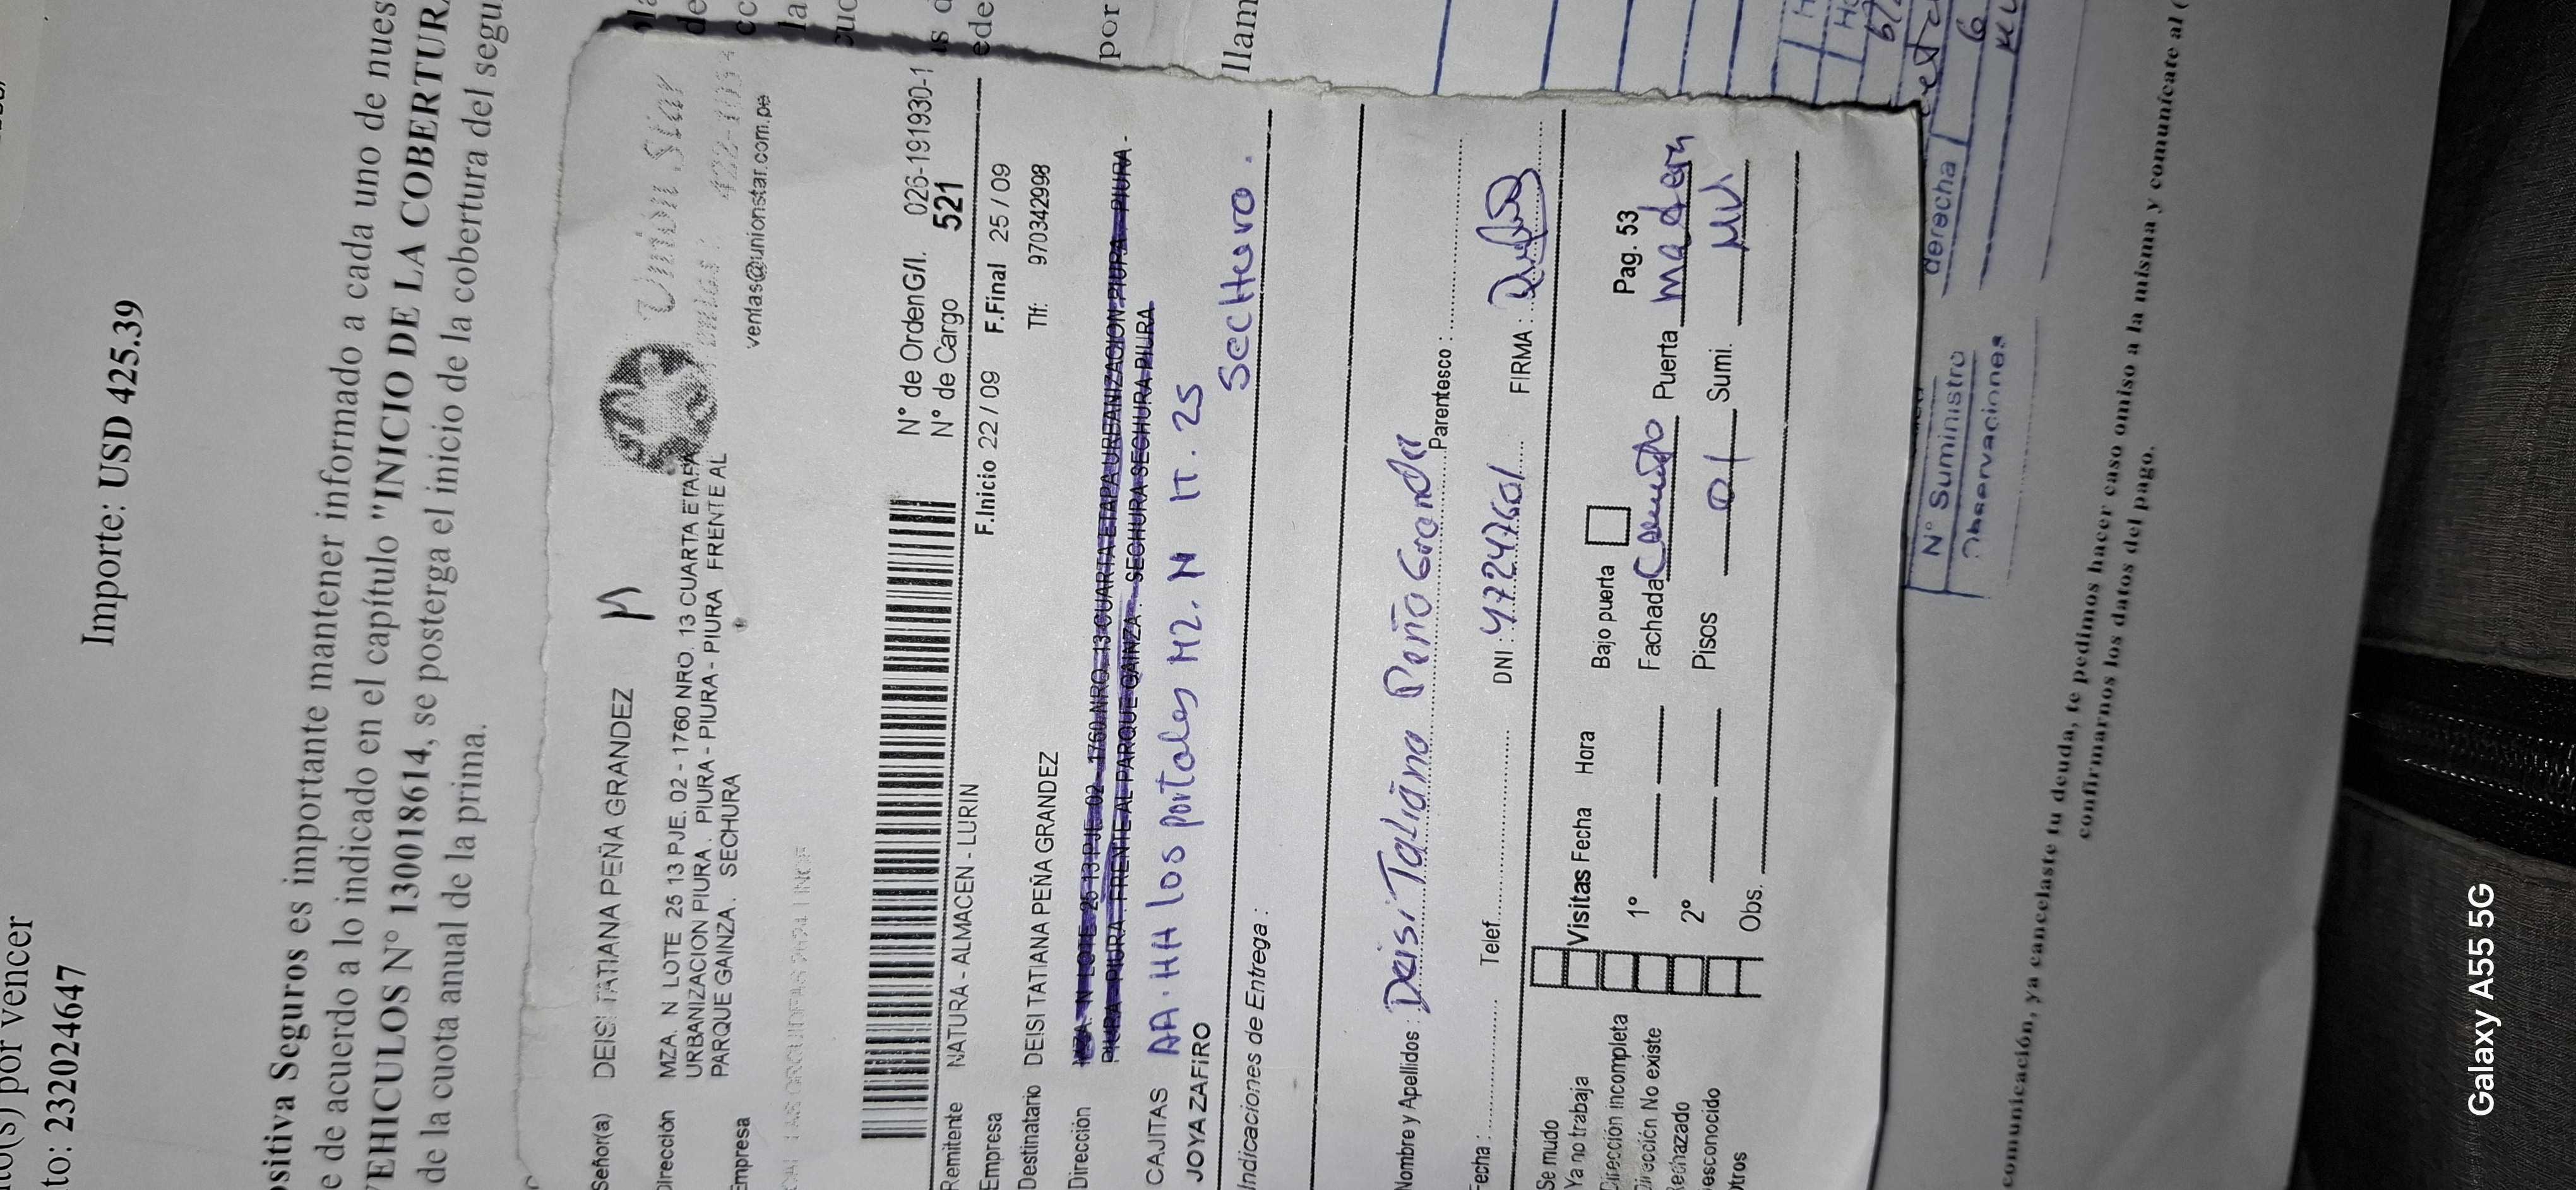 to(s) por vencer
to: 2320024647
Importe: USD 425.39
ositiva Seguros es importante mantener informado a cada uno de nues
e de acuerdo a lo indicado en el capítulo "INICIO DE LA COBERTURA
VEHICULOS N° 1300018614, se posterga el inicio de la cobertura del segu
de la cuota anual de la prima.
Señor(a) DEISI TATIANA PEÑA GRANDEZ
Dirección MZA. N LOTE 25 13 PJE. 02 - 1760 NRO. 13 CUARTA ETAPA
URBANIZACION PIURA . PIURA - PIURA - PIURA FRENTE AL
PARQUE GAINZA . SECHURA
Empresa
Union Star
ventas@unionstar.com.pe
N° de Orden G/I. 026-191930-1
N° de Cargo 521
Remitente NATURA - ALMACEN - LURIN
Empresa F.Inicio 22 / 09 F.Final 25 / 09
Destinatario DEISI TATIANA PEÑA GRANDEZ Tlf: 970342998
Dirección MZA. N LOTE 25 13 PJE. 02 - 1760 NRO. 13 CUARTA ETAPA URBANIZACION PIURA . PIURA -
PIURA - PIURA . FRENTE AL PARQUE GAINZA . - SECHURA SECHURA PIURA
CAJITAS AA.HH Los portales MZ. N lT. 25
JOYA ZAFIRO
Sechura.
Indicaciones de Entrega :
Nombre y Apellidos : Deisi Tatiana Peña Grandez Parentesco :
Fecha : Telef. DNI : 47247601 FIRMA :
Se mudo
Ya no trabaja
Dirección Incompleta
Dirección No existe
Rechazado
Desconocido
Otros
Visitas Fecha Hora Bajo puerta Pag. 53
1° Fachada Cemento Puerta madera
2° Pisos 01 Sumi.
Obs.
derecha
N° Suministro
Observaciones
comunicación, ya cancelaste tu deuda, te pedimos hacer caso omiso a la misma y comunícate al
confirmarnos los datos del pago.
Galaxy A55 5G